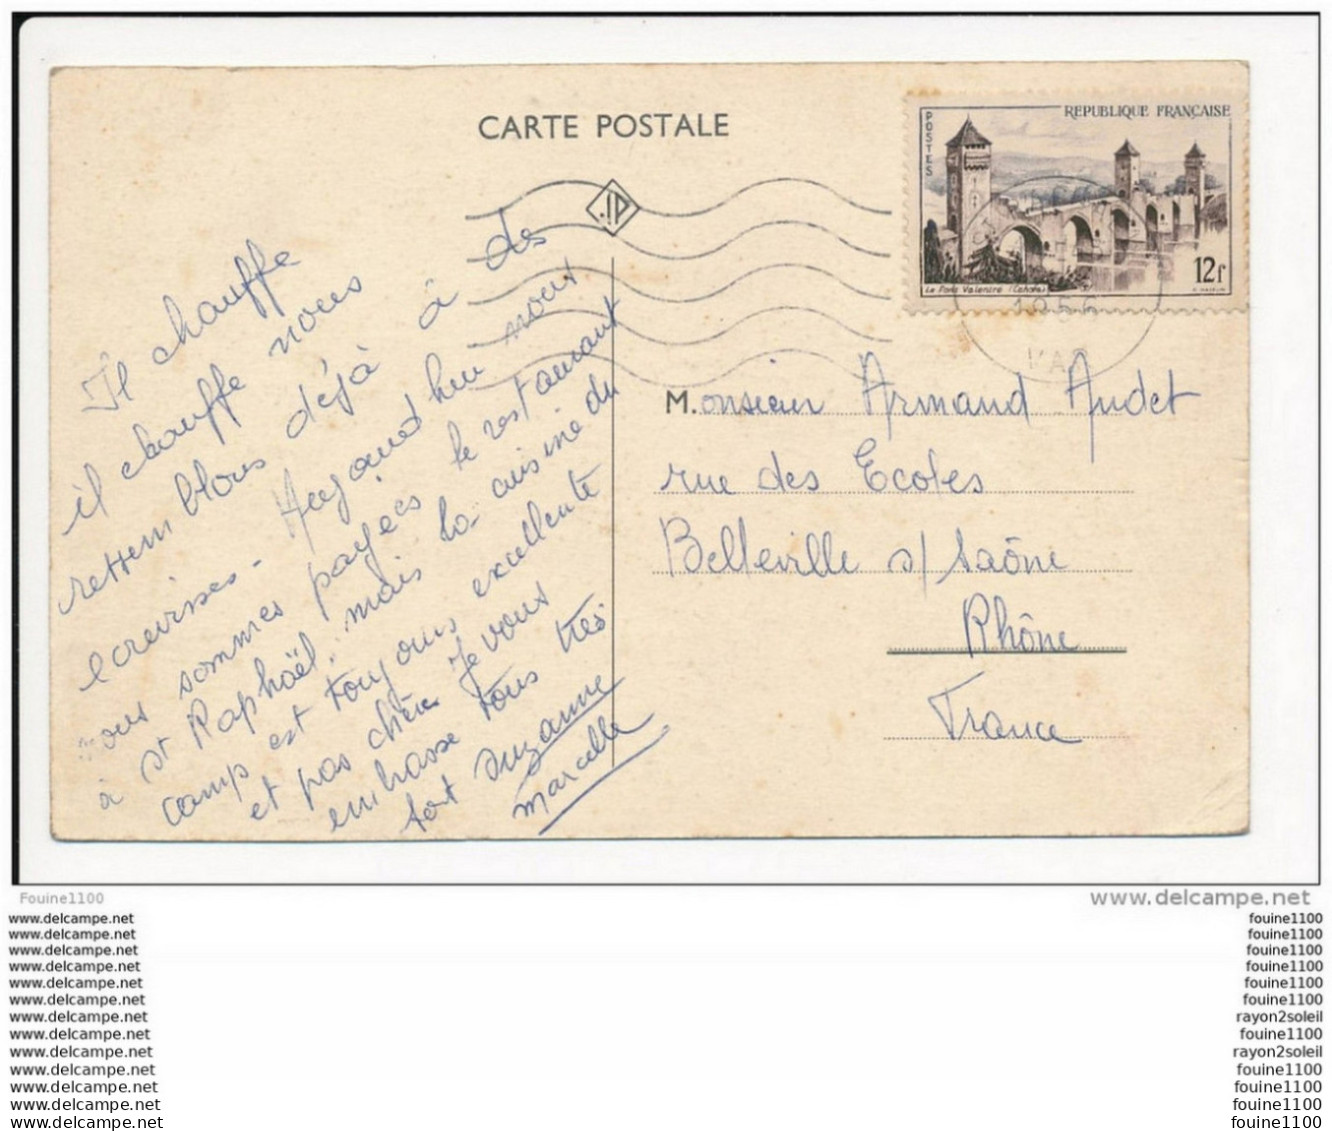 CARTE POSTALE
JP
POSTES
REPUBLIQUE FRANÇAISE
Le Pont Valentré (Cahors)
12f
1956
VAR
Il chauffe
il chauffe nous
ressemblons déjà à des
ecrevisses - Aujourd'hui nous
nous sommes payées le restaurant
à St Raphaël, mais la cuisine du
camp est toujours excellente
et pas chère Je vous
embrasse tous très
fort Suzanne
Marcelle
Monsieur Armand Audet
rue des Ecoles
Belleville s/ Saône
Rhône
France
Fouine1100
www.delcampe.net
www.delcampe.net
fouine1100
www.delcampe.net
fouine1100
www.delcampe.net
fouine1100
www.delcampe.net
fouine1100
www.delcampe.net
fouine1100
www.delcampe.net
fouine1100
www.delcampe.net
rayon2soleil
www.delcampe.net
fouine1100
www.delcampe.net
rayon2soleil
www.delcampe.net
fouine1100
www.delcampe.net
fouine1100
www.delcampe.net
fouine1100
www.delcampe.net
fouine1100